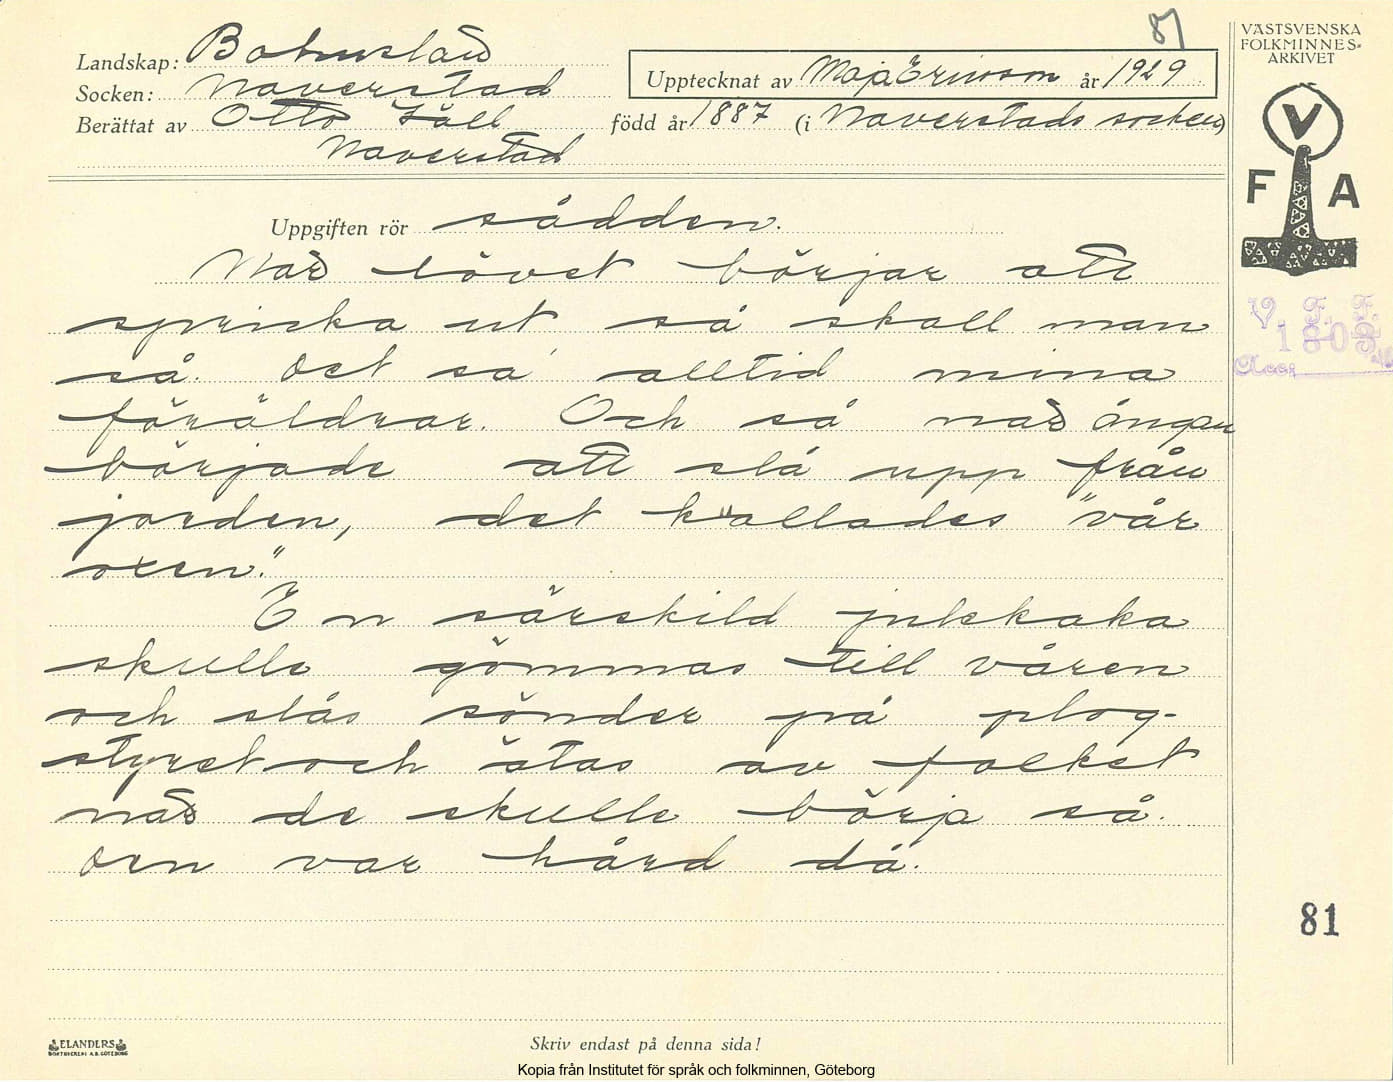 87
VÄSTSVENSKA
FOLKMINNES-
ARKIVET
Landskap: Bohuslän
Upptecknat av Maja Ericsson år 1929
Socken: Naverstad
Berättat av Otto Fäll född år 1887 (i Naverstads socken)
Naverstad
V
F A
Uppgiften rör sådden.
När lövet börjar att
spricka ut så skall man
så. Det sa alltid mina
föräldrar. Och så när ångan
började att slå upp från
jorden, det kallades "vår
oxen."
En särskild julekaka
skulle gömmas till våren
och slås sönder på plog-
styret och ätas av folket
när de skulle börja så.
Den var hård då.
V. F. F.
1803
Acc:
81
ELANDERS
BOKTRYCKERI A.B. GÖTEBORG
Skriv endast på denna sida!
Kopia från Institutet för språk och folkminnen, Göteborg